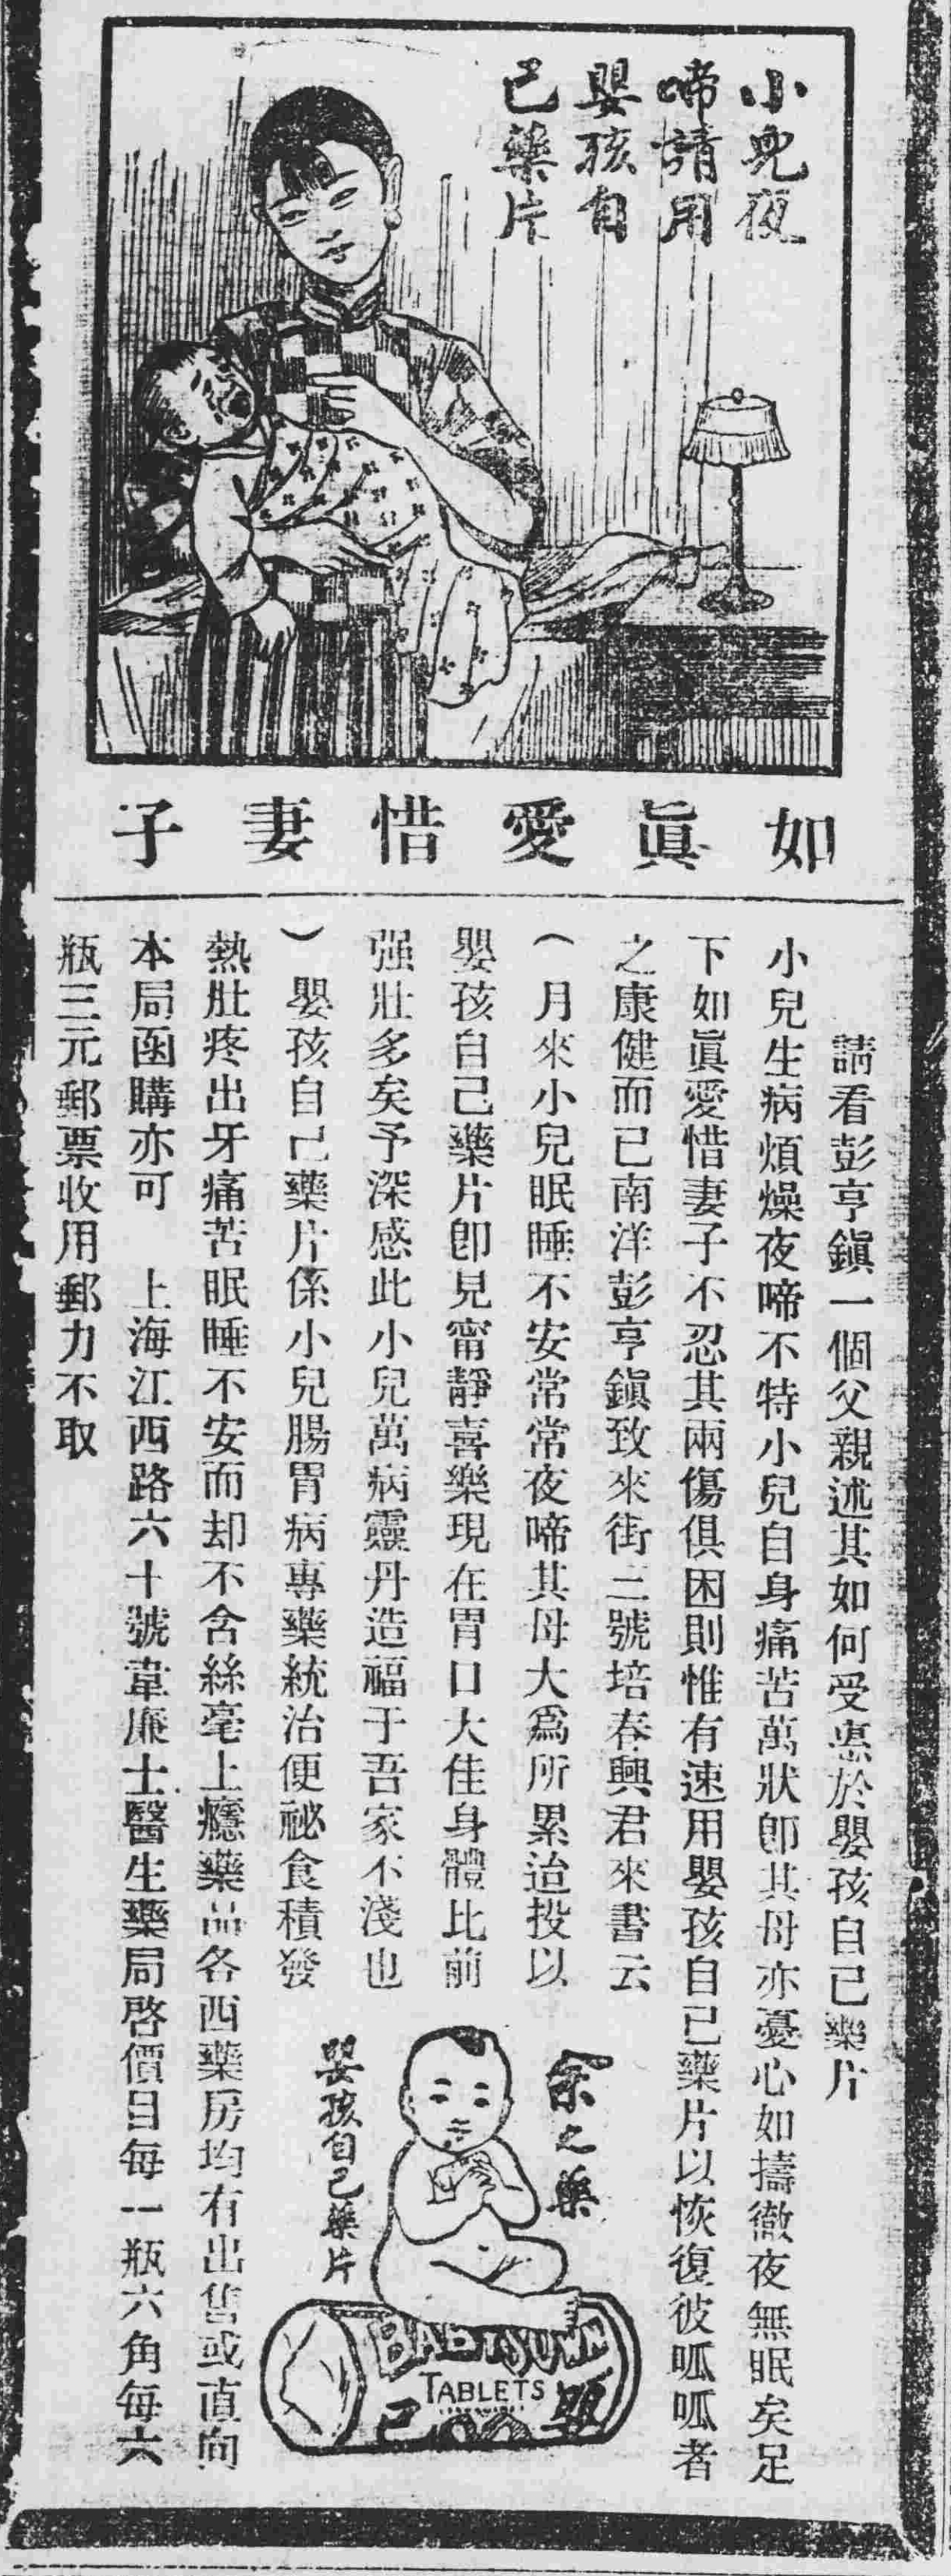 小兒夜
啼請用
嬰孩自
己藥片
如眞愛惜妻子
請看彭亨鎭一個父親述其如何受惠於嬰孩自己藥片
小兒生病煩燥夜啼不特小兒自身痛苦萬狀卽其母亦憂心如擣徹夜無眠矣足
下如眞愛惜妻子不忍其兩傷俱困則惟有速用嬰孩自己藥片以恢復彼呱呱者
之康健而已南洋彭亨鎭致來街二號培春興君來書云
（月來小兒眠睡不安常常夜啼其母大爲所累迨投以
嬰孩自己藥片卽見甯靜喜樂現在胃口大佳身體比前
强壯多矣予深感此小兒萬病靈丹造福于吾家不淺也
）嬰孩自己藥片係小兒腸胃病專藥統治便祕食積發
熱肚疼出牙痛苦眠睡不安而却不含絲毫上癮藥品各西藥房均有出售或直向
本局函購亦可　上海江西路六十號韋廉士醫生藥局啓價目每一瓶六角每六
瓶三元郵票收用郵力不取
余之藥
嬰孩自己藥片
BABY'S OWN
TABLETS
己 嬰